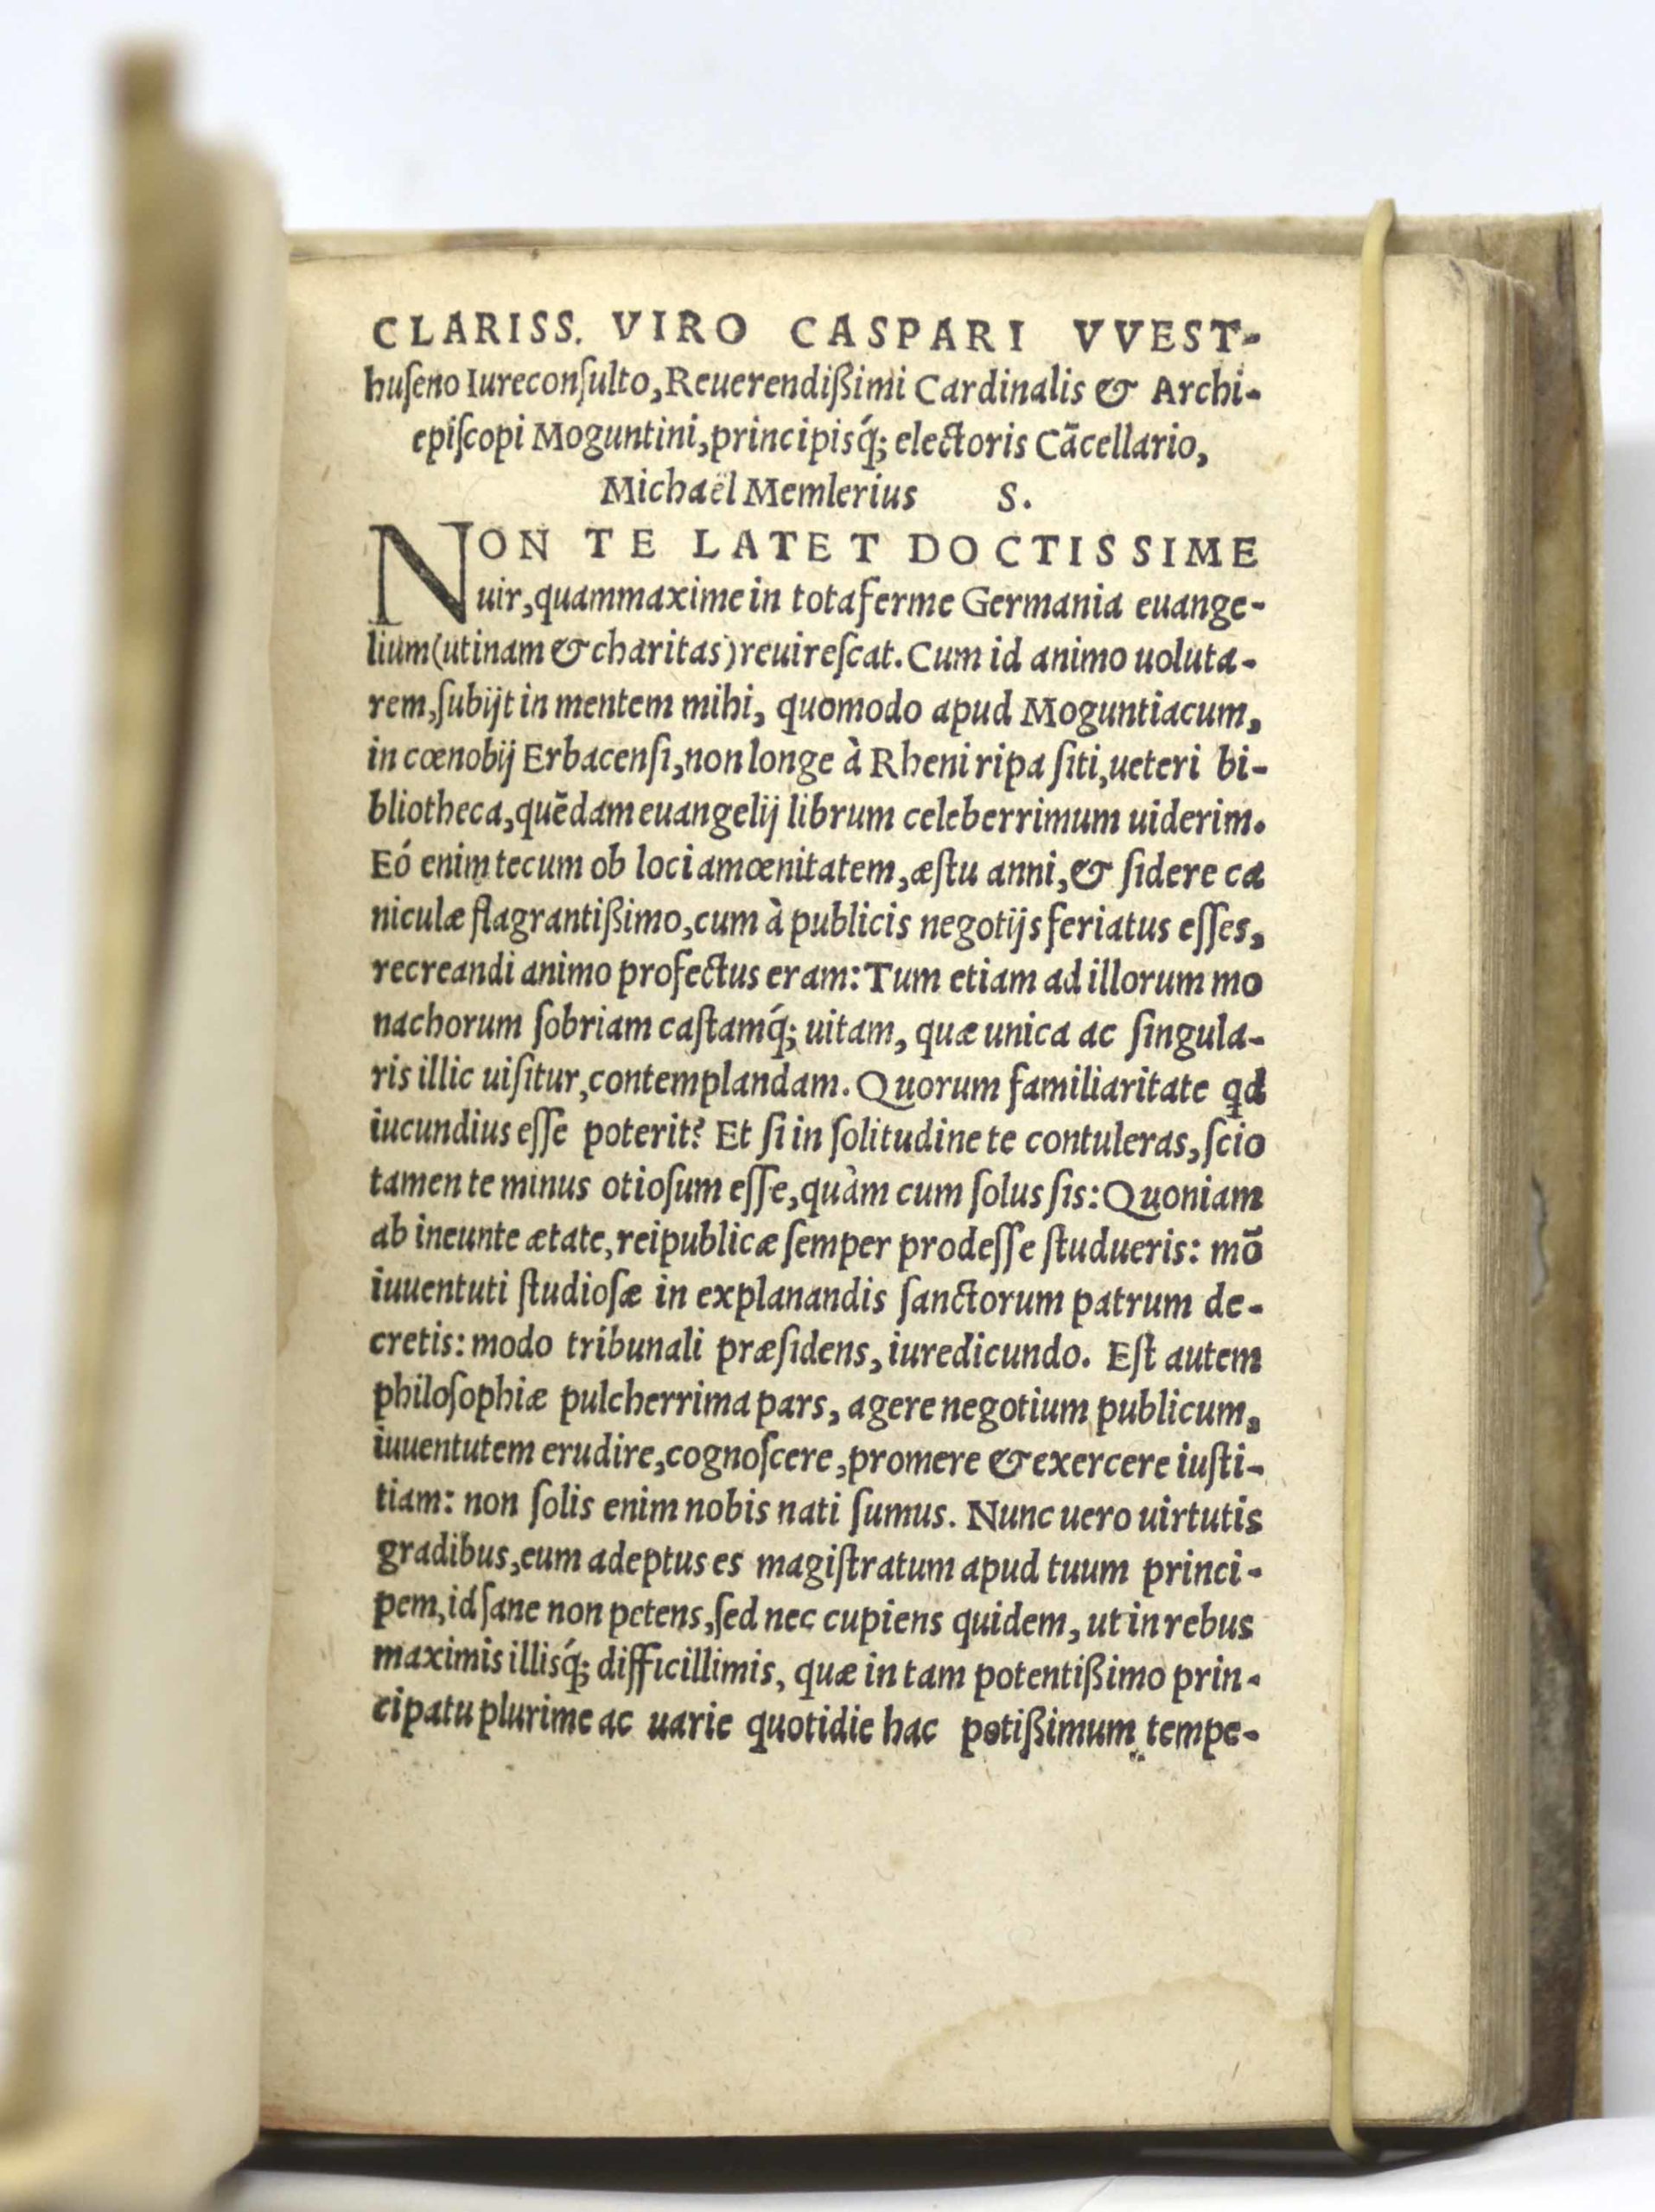 CLARISS. VIRO CASPARI VVEST-
huſeno Iureconſulto, Reuerendiſsimi Cardinalis & Archi-
epiſcopi Moguntini, principisq́; electoris Cãcellario,
Michaël Memlerius S.
NON TE LATET DOCTISSIME
uir, quammaxime in tota ferme Germania euange-
lium (utinam & charitas) reuireſcat. Cum id animo uoluta-
rem, ſubijt in mentem mihi, quomodo apud Moguntiacum,
in cœnobij Erbacenſi, non longe à Rheni ripa ſiti, ueteri bi-
bliotheca, quẽdam euangelij librum celeberrimum uiderim.
Eó enim tecum ob loci amœnitatem, æſtu anni, & ſidere ca
niculæ flagrantißimo, cum à publicis negotijs feriatus eſſes,
recreandi animo profectus eram: Tum etiam ad illorum mo
nachorum ſobriam caſtamq́; uitam, quæ unica ac ſingula-
ris illic uiſitur, contemplandam. Quorum familiaritate qd
iucundius eſſe poterit? Et ſi in ſolitudine te contuleras, ſcio
tamen te minus otioſum eſſe, quàm cum ſolus ſis: Quoniam
ab ineunte ætate, reipublicæ ſemper prodeſſe ſtudueris: mõ
iuuentuti ſtudioſæ in explanandis ſanctorum patrum de-
cretis: modo tribunali præſidens, iuredicundo. Eſt autem
philoſophiæ pulcherrima pars, agere negotium publicum,
iuuentutem erudire, cognoſcere, promere & exercere iuſti-
tiam: non ſolis enim nobis nati ſumus. Nunc uero uirtutis
gradibus, eum adeptus es magiſtratum apud tuum princi-
pem, id ſane non petens, ſed nec cupiens quidem, ut in rebus
maximis illisq́; difficillimis, quæ in tam potentißimo prin-
cipatu plurime ac uarie quotidie hac potißimum tempe-